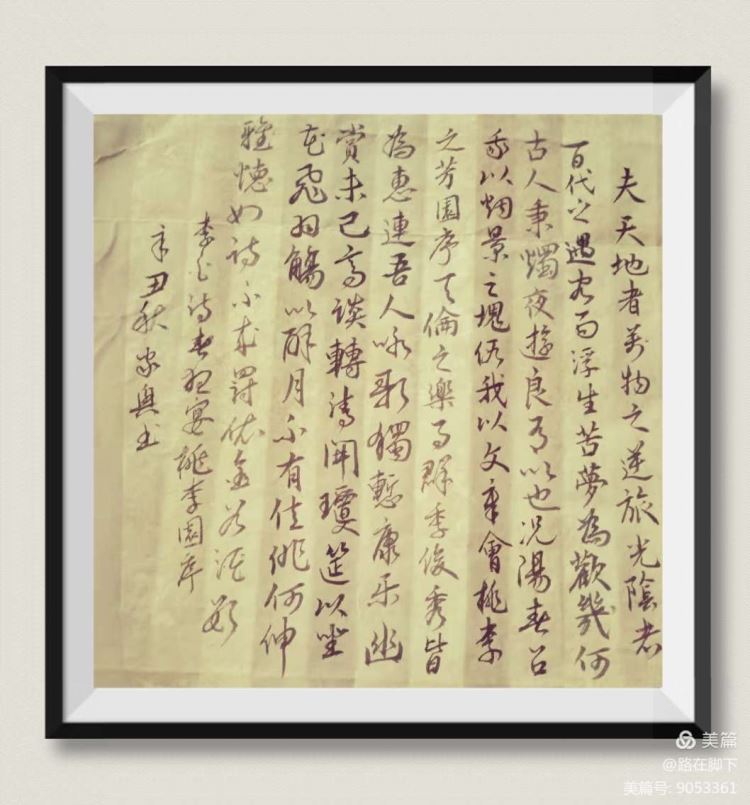 夫天地者萬物之逆旅光陰者
百代之過客而浮生若夢為歡幾何
古人秉燭夜遊良有以也況陽春召
我以烟景之塊假我以文章會桃李
之芳園序天倫之樂事群季俊秀皆
為惠連吾人咏歌獨慙康乐幽
賞未已高談轉清開瓊筵以坐
花飛羽觴以醉月不有佳作何伸
雅懷如詩不成罰依金谷酒數
李白詩春夜宴桃李園序
辛丑秋家興书
美篇
@路在脚下
美篇号: 9053361